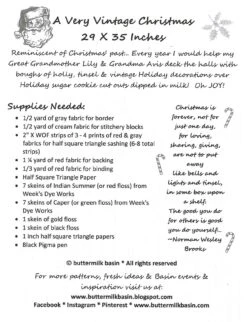 A Very Vintage Christmas
29 X 35 Inches
Reminiscent of Christmas' past... Every year I would help my
Great Grandmother Lily & Grandma Avis deck the halls with
boughs of holly, tinsel & vintage Holiday decorations over
Holiday sugar cookie cut outs dipped in milk! Oh JOY!
Supplies Needed:
1/2 yard of gray fabric for border
1/2 yard of cream fabric for stitchery blocks
2" X WOF strips of 3 - 4 prints of red & gray
fabrics for half square triangle sashing (6-8 total
strips)
1 ¼ yard of red fabric for backing
1/3 yard of red fabric for binding
Half Square Triangle Paper
7 skeins of Indian Summer (or red floss) from
Week's Dye Works
7 skeins of Caper (or green floss) from Week's
Dye Works
1 skein of gold floss
1 skein of black floss
1 inch half square triangle papers
Black Pigma pen
Christmas is
forever, not for
just one day,
for loving,
sharing, giving,
are not to put
away
like bells and
lights and tinsel,
in some box upon
a shelf.
The good you do
for others is good
you do yourself...
~Norman Wesley
Brooks
© buttermilk basin * All rights reserved
For more patterns, fresh ideas & Basin events &
inspiration visit us at:
www.buttermilkbasin.blogspot.com
Facebook * Instagram * Pinterest * www.buttermilkbasin.com